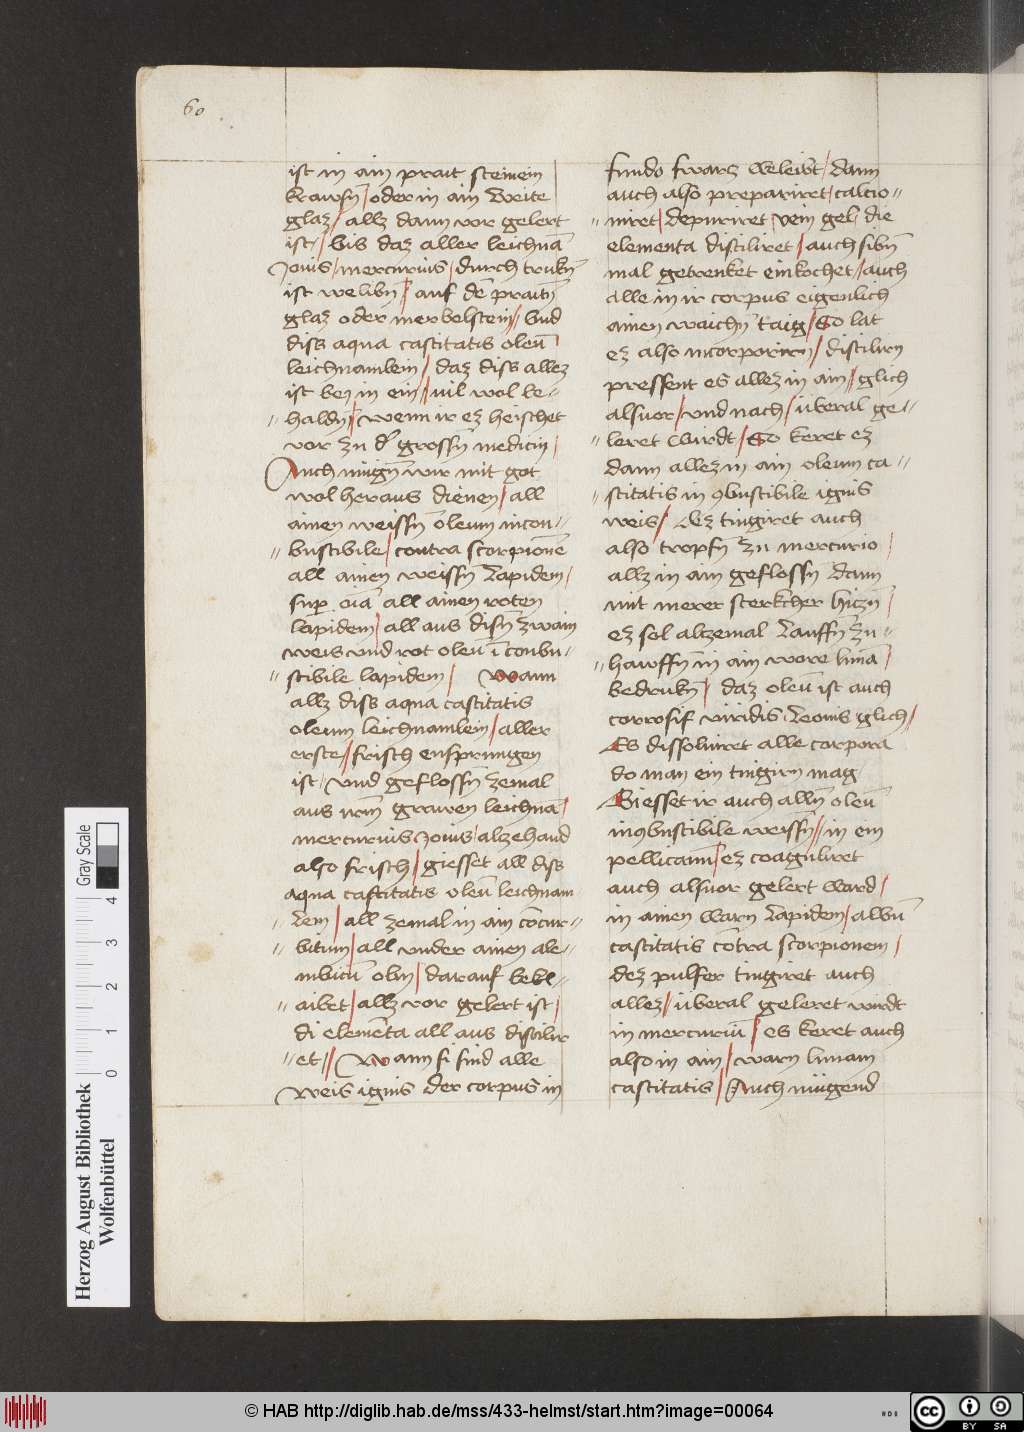 60
ist in ain prait steinein
krawsn̄ / oder in ain weite
glaz / allz dann vor gelert
ist / bis daz aller leichnā
Jouis / mercurius / durch trukn̄
ist welibn̄ / auf dē praitn̄
glaz oder merbelstein // vnd
diss aqua castitatis oleū
leichnamlein / daz diss allez
ist bey in ein // vil wol be-
haldn̄ / wenn ir ez heischet
vor zu d' grossn̄ medicin /
Auch mugn̄ wir mit got
wol heraus dienen / all
ainen weissn̄ oleum incon-
bustibile / contra scorpionē
all ainen weissn̄ Lapidem /
sup oīa all ainen roten
lapidem / all aus disn̄ zwain
weis vnd rot oleū ī conbu-
stibile lapidem / Wann
allz diss aqua castitatis
oleum leichnamlein / aller
erste // frisch ensprungen
ist / vnd geflossn̄ zemal
aus irm̄ grawen leichnā /
mercurius Jouis / alzehand
also frisch / giesset all diss
aqua castitatis oleū leichnam
Lem / all zemal in ain cōcur-
bitum / all vnder ainen ale-
mbicū obn̄ / darauf bekl-
aibet / allz vor gelert ist /
di elemēta all aus distilir
et // Wann si sind alle
weis ignis der corpus in
fundo swarz beleibt / dann
auch also prepariret / calcio-
niret / depuriret vein gel / die
elementa distiliret / auch sibn̄
mal getrenket einkochet / auch
alle in ir corpus eigenlich
ainen waichn̄ taig / So lat
ez also incorporirn / distilirn
pressent es allez in ain // glich
alsuor / vnd nach / überal ge-
leret wirdt / So keret ez
dann allez in ain oleum ca-
stitatis in 9bustibile ignis
weis / dez tingiret auch
also tropfn̄ zu mercurio /
allz in ain geflossn̄ dann
mit merer sterkcher hiczn̄ /
ez sol alzemal Lauffn̄ zu-
hawffn̄ in ain wore lunā /
bedrukn̄ / daz oleū ist auch
corrosif viridis Leonis glich /
Es dissoluiret alle corpora
do man ein tingirn mag
Giesset ir auch alln̄ oleū
in9bustibile weissn̄ // in ein
pellicanū / ez coaguliret
auch alsuor gelert ward /
in ainen warn Lapidem / albū
castitatis cōtra scorpionem /
dez pulfer tingiret auch
allez / überal geleret wirdt
in mercuriū / es keret auch
also in ain / warn lunam
castitatis / Auch mügend
Herzog August Bibliothek
Wolfenbüttel
Gray Scale
0 1 2 3 4
© HAB http://diglib.hab.de/mss/433-helmst/start.htm?image=00064
cc BY SA